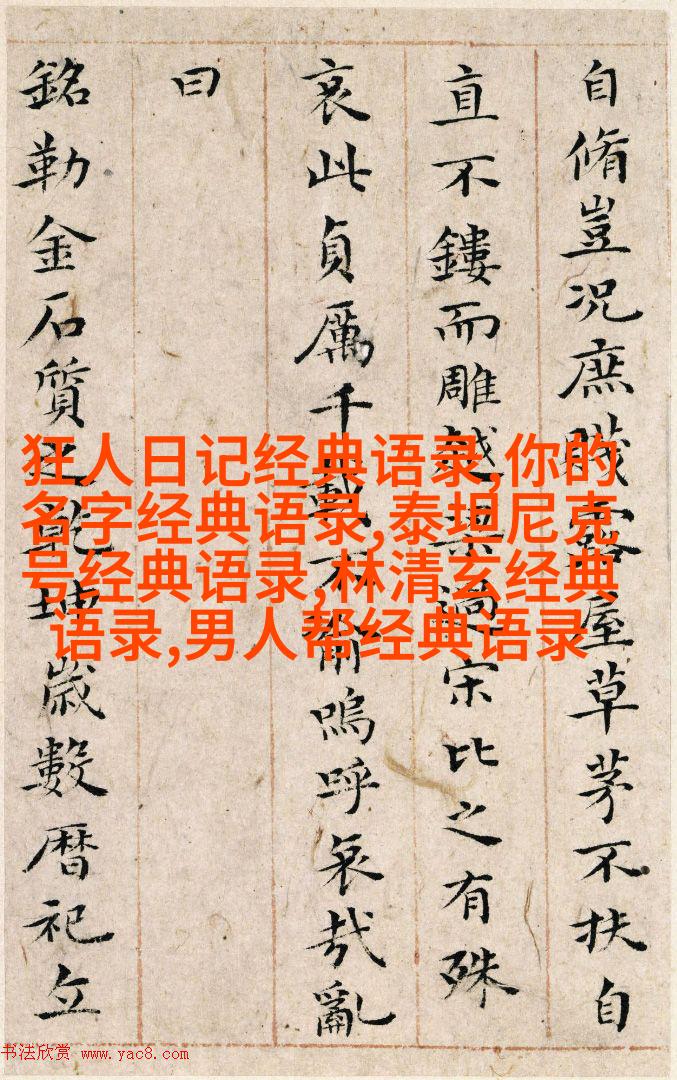 自脩豈況庶賤露屋草茅不扶自
直不鏤而雕越梁過宋比之有殊
哀此貞厲千載不渝嗚呼哀哉亂
曰
銘勒金石質之乾坤歲數暦祀立
狂人日记经典语录,你的
名字经典语录,泰坦尼克
号经典语录,林清玄经典
语录,男人帮经典语录
书法欣赏 www.yac8.com